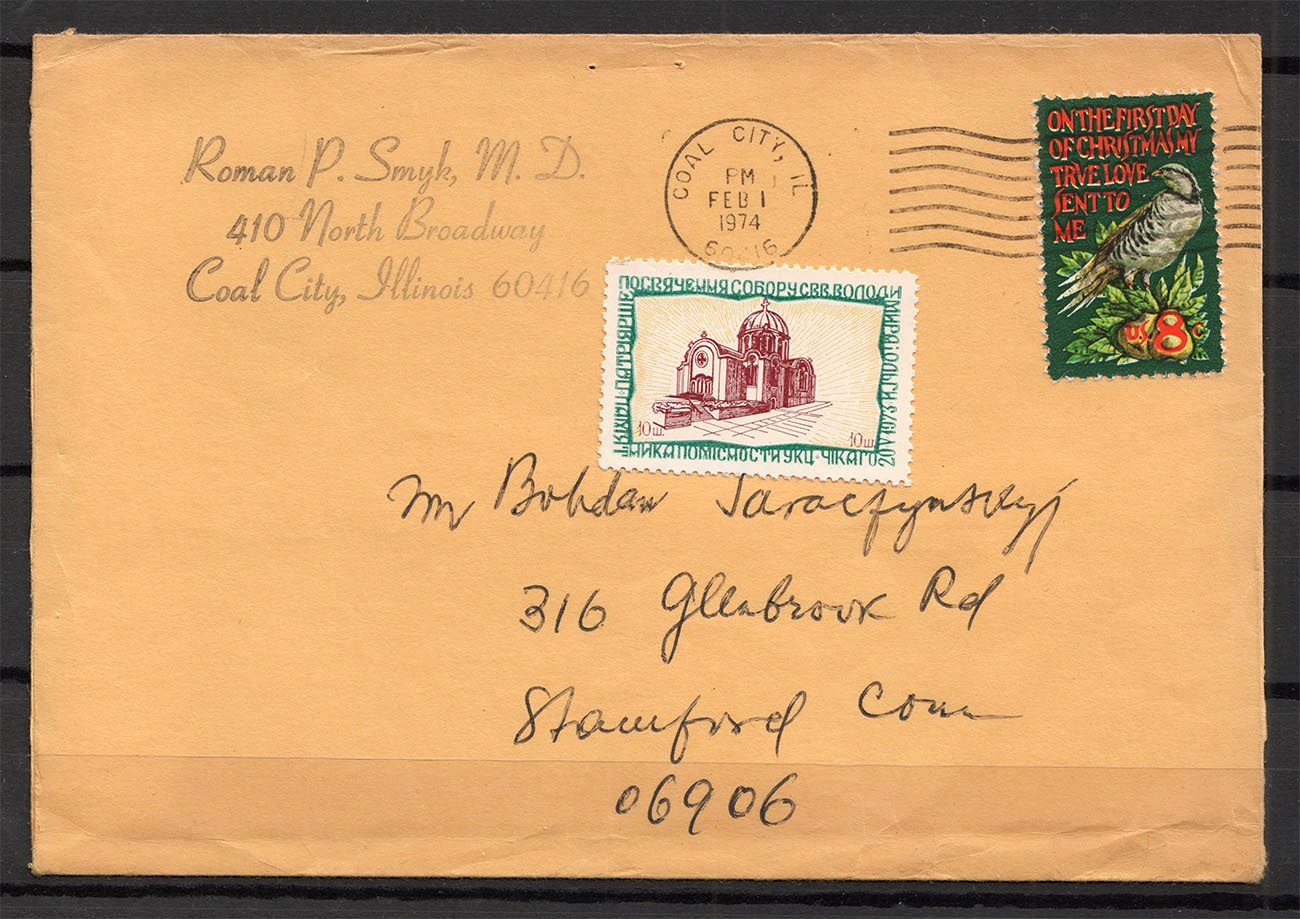 Roman P. Smyk, M. D.
410 North Broadway
Coal City, Illinois 60416
COAL CITY, IL
PM
FEB 1
1974
ON THE FIRST DAY
OF CHRISTMAS MY
TRVE LOVE
SENT TO
ME
U.S. 8 C
ПОСВЯЧЕННЯ СОБОРУ СВВ. ВОЛОДИ
МИРА І ОЛЬГИ
20 V 1973
ПОМІСНОСТИ УКЦ · ЧІКАГО
10 ш. 10 ш.
Mr Bohdan
316 Glenbrook Rd
Stamford Conn
06906